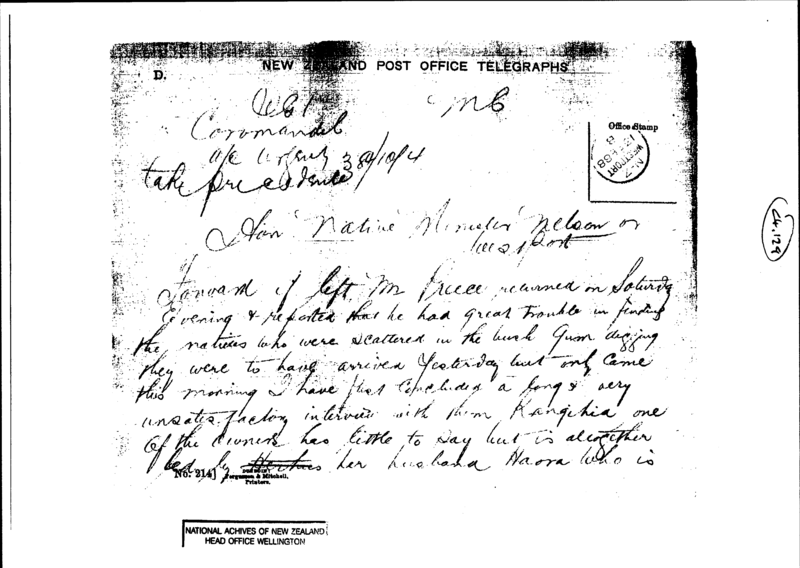 NEW ZEALAND POST OFFICE TELEGRAPHS
D.
Coromandel
a/c urgent
take precedence
Office Stamp
WESTPORT
Hon Native Minister Nelson or
westport
Forward if left Mr Preece returned on Saturday
Evening & reported that he had great trouble in finding
the natives who were scattered in the bush Gum digging
they were to have arrived Yesterday but only Came
this morning I have just Concluded a long & very
unsatisfactory interview with them Rangihia one
of the owners has little to say but is altogether
led by her husband Haora who is
No. 214]
Fergusson & Mitchell,
Printers.
Ch.129
NATIONAL ACHIVES OF NEW ZEALAND
HEAD OFFICE WELLINGTON